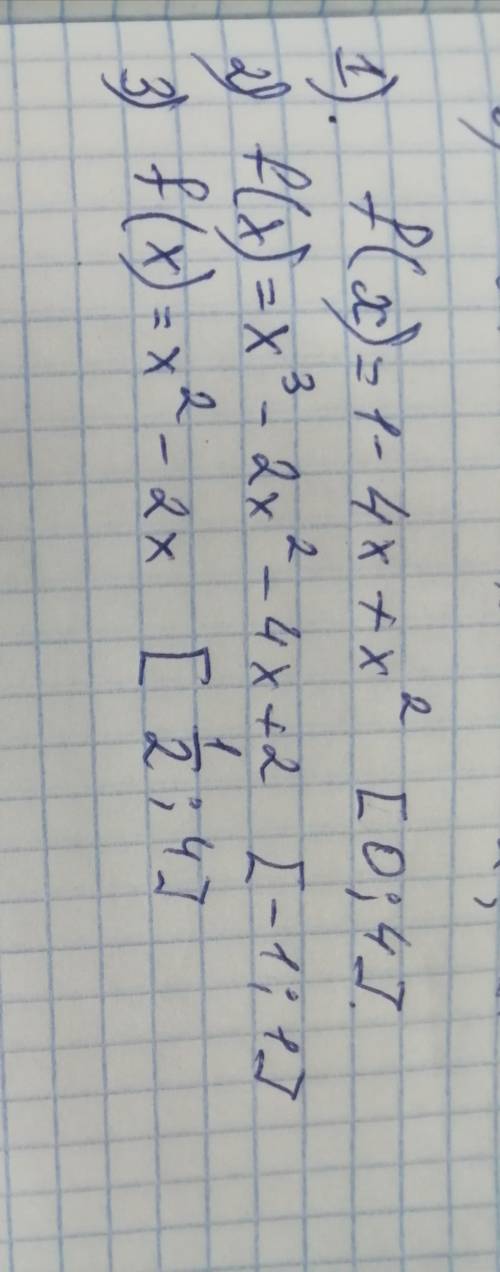 1). f(x) = 1 - 4x + x² [0; 4].
2) f(x) = x³ - 2x² - 4x + 2 [-1; 1]
3) f(x) = x² - 2x [1/2; 4]